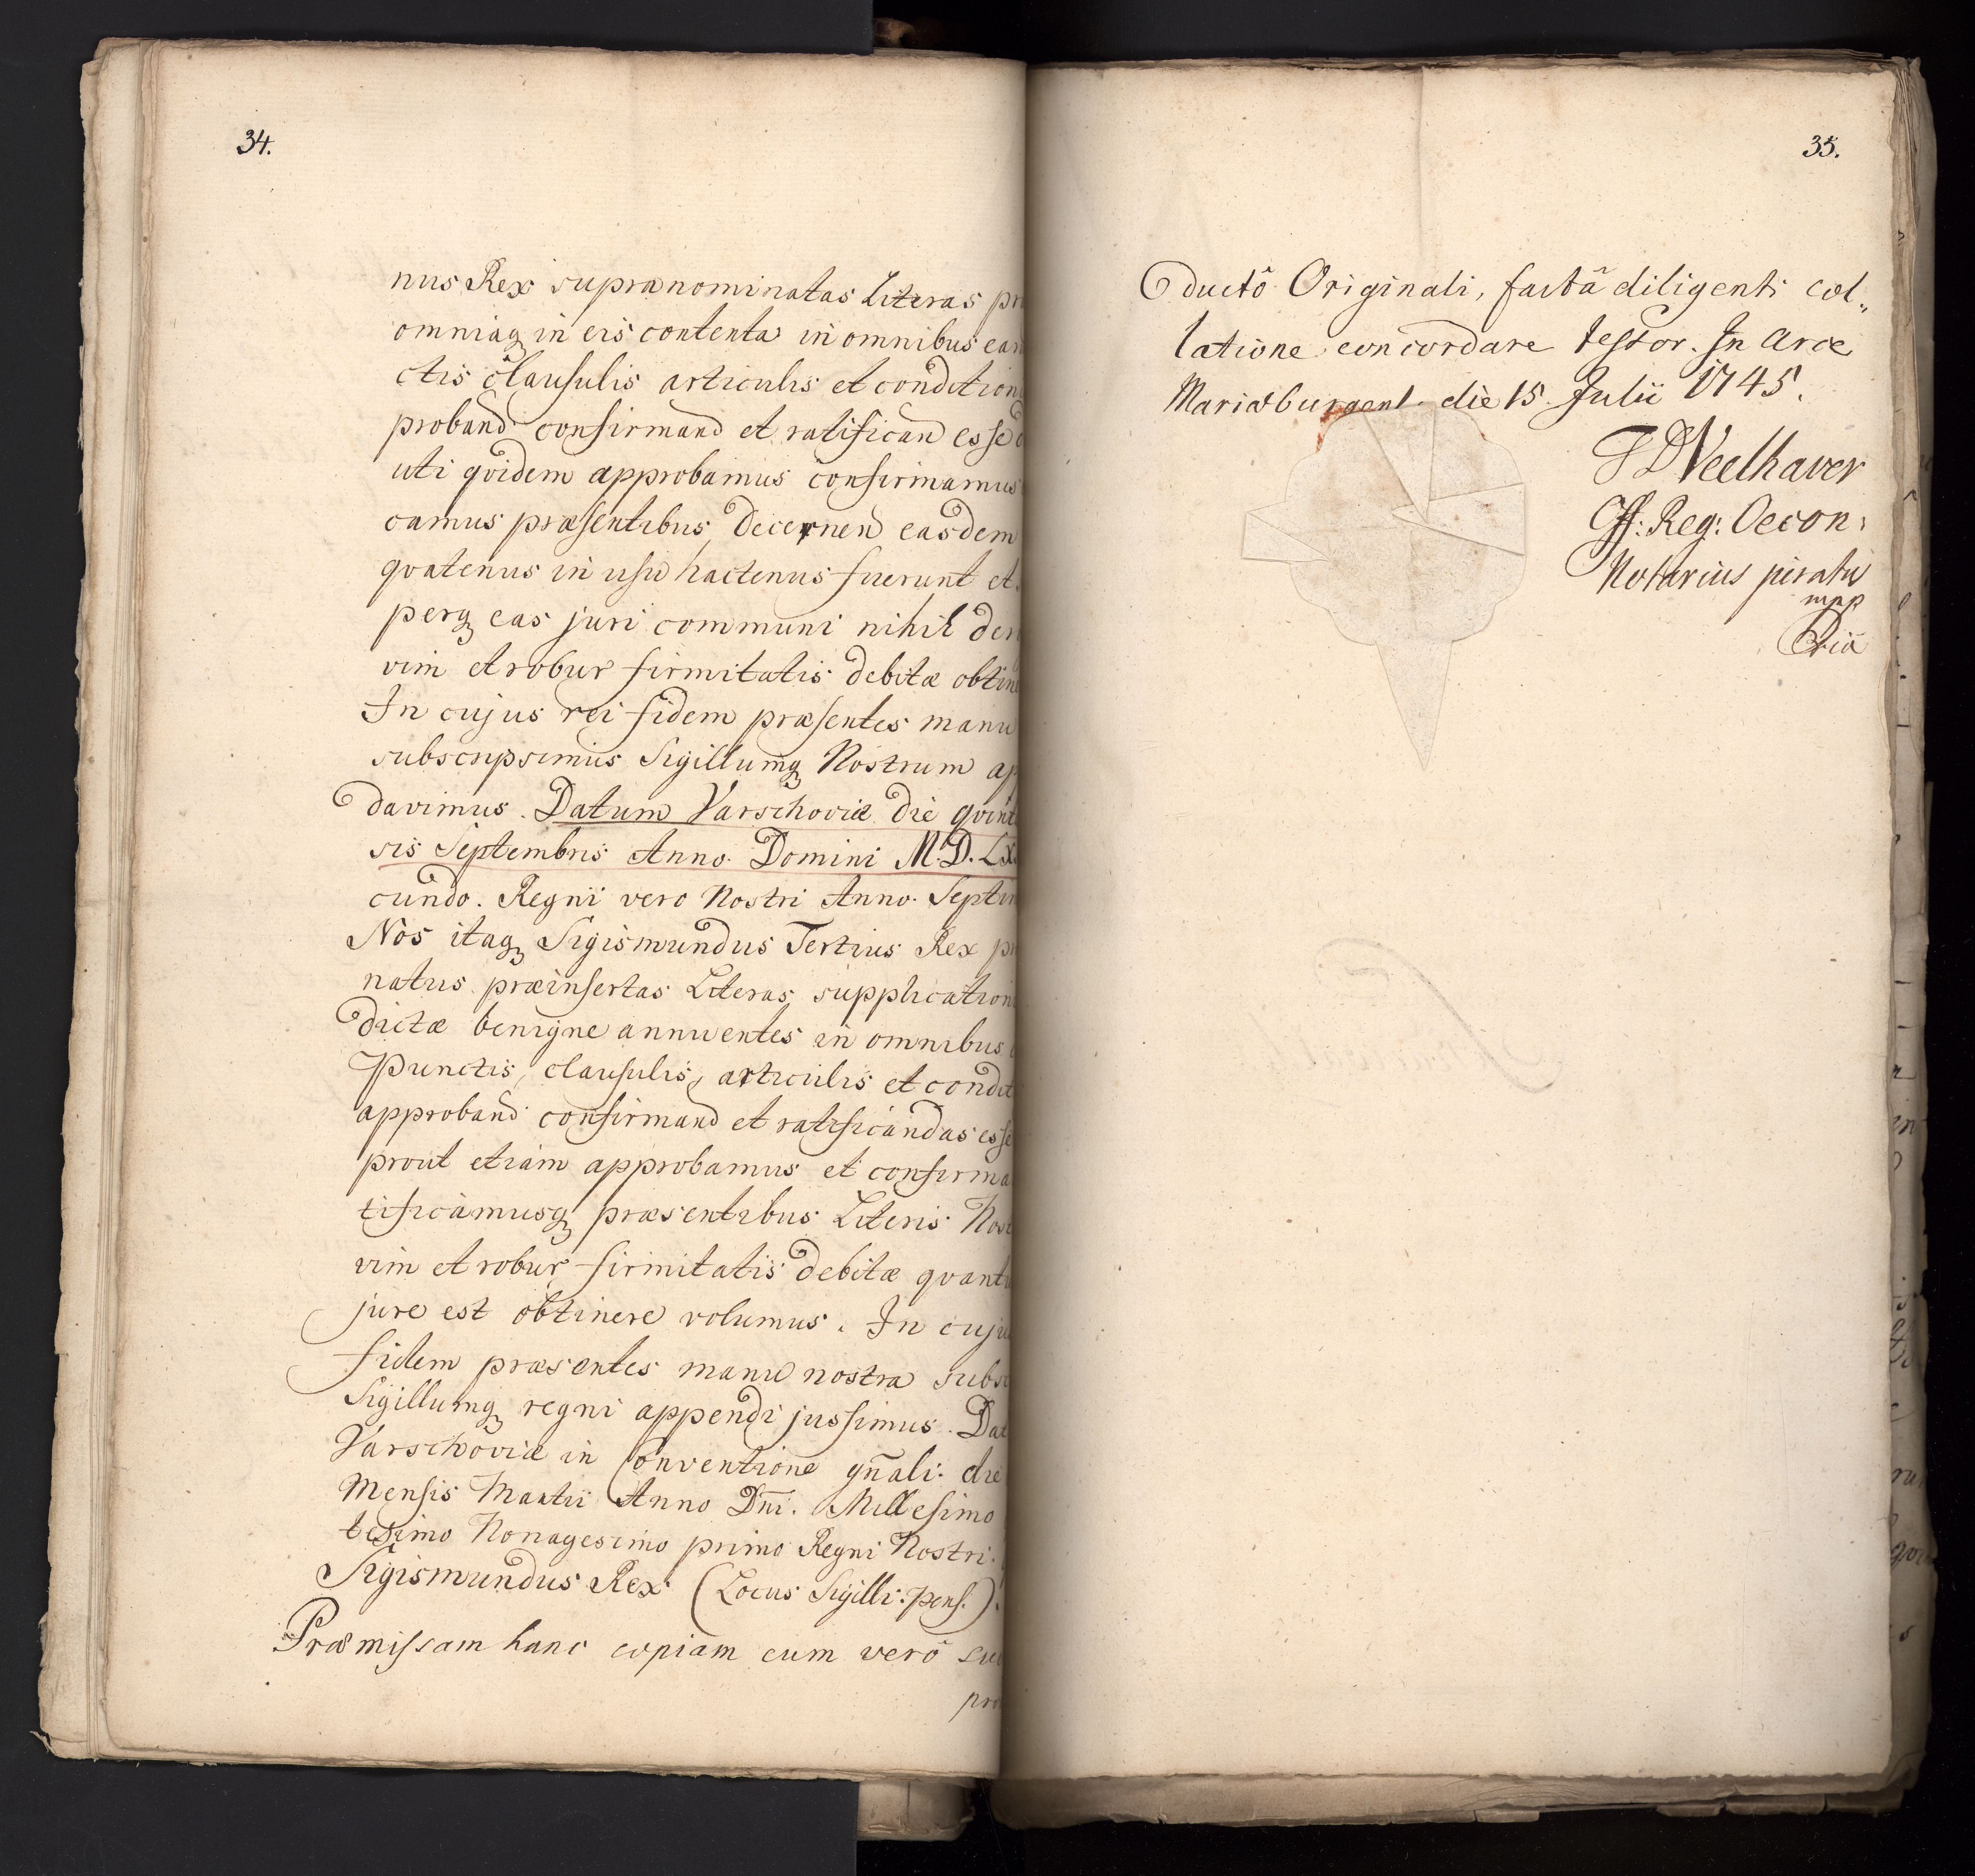 34.
nus Rex supranominatas Literas pr
omniaq in eis contenta in omnibus ear
ctis clausulis articulis et condition
proband confirmand et ratifican esse
uti qvidem approbamus confirmamus
camus præsentibus, Decernen easdem
qvatenus in usu hactenus fuerunt et
perq eas juri communi nihil der
vim et robur firmitatis debitæ obtin
In cujus rei fidem præsentes manu
subscripsimus Sigillumq Nostrum ap
davimus. Datum Varschoviæ die qvint
sis Septembris Anno Domini M.D.LX
cundo. Regni vero Nostri Anno Septi
Nos itaq Sigismundus Tertius Rex pr
natus præinsertas Literas supplication
dictæ benigne annuentes in omnibus
Punctis, clausulis, articulis et condit
approband confirmand et ratificandas esse
prout etiam approbamus et confirma
tificamusq præsentibus Literis Nost
vim et robur firmitatis debitæ qvant
jure est obtinere volumus. In cuju
fidem præsentes manu nostra subsc
Sigillumq regni appendi jussimus. Dat
Varschoviæ in Conventione gñali. die
Mensis Martii Anno Dñi. Millesimo
tesimo Nonagesimo primo Regni Nostri.
Sigismundus Rex (Locus Sigilli: pens.).
Præmissam hanc copiam cum verô su
pro
35.
ductô Originali, factâ diligenti col„
latione concordare testor. In Arce
Mariæburgens. die 15. Julii 1745.
J D Veelhaver
Off: Reg: Oecon:
Notarius juratu
mpp